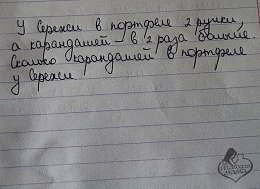 У Сережи в портфеле 2 ручки,
а карандашей – в 2 раза больше.
Сколько карандашей в портфеле
у Сережи.